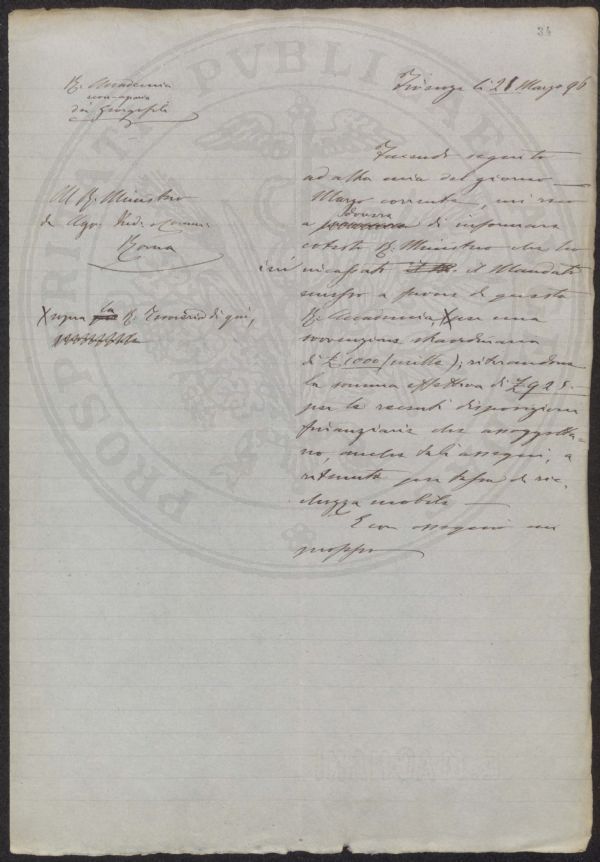 34
R. Accademia
economico-agraria
dei Georgofili
Firenze li 28 Marzo 96
Al R. Ministro
di Agr. Ind. e Comm.
Roma
Facendo seguito
ad altra mia del giorno
Marzo corrente, mi reco
a dovere di informare
cotesto R. Ministero che ho
incassati il Mandato
emesso a favore di questa
R. Accademia, X per una
sovvenzione straordinaria
di £ 1000 (mille); ritirandone
la somma effettiva di £ 925.
per le recenti disposizioni
finanziarie che assoggetta-
no, anche tali assegni, a
ritenuta per tassa di ric-
chezza mobile
E con ossequio mi
professo
X sopra la R. Tesoreria di qui,
PROSPERITATI PVBLICAE AVGENDAE